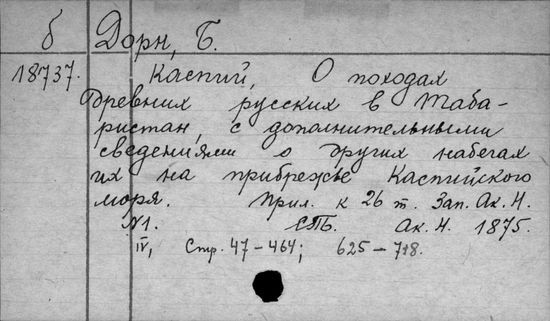 б Дорн, Б.
18737. Каспий, О походах
древних русских в Таба-
ристан, с дополнительными
сведениями о других набегах
их на прибрежье Каспийского
моря. Прил. к 26 т. Зап. Ак. Н.
N1. СПБ. Ак. Н. 1875.
IV, Стр. 47-464; 625-718.